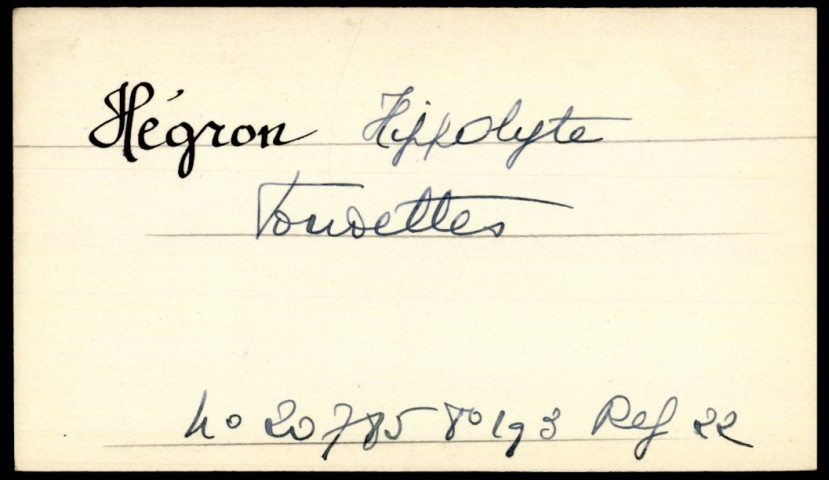 Hégron Hippolyte
Tousettes
No 20785 Fo 193 Reg 22